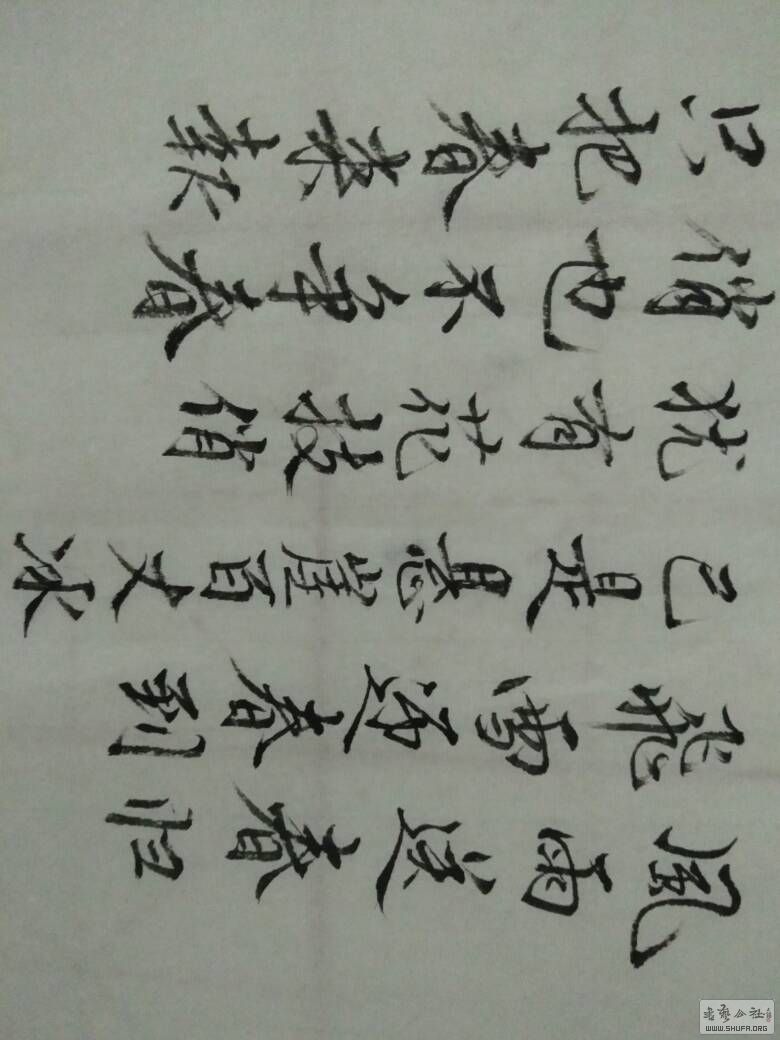 風雨送春归
飛雪迎春到
已是悬崖百丈冰
犹有花枝俏
俏也不争春
只把春来報
書藝公社
WWW.SHUFA.ORG